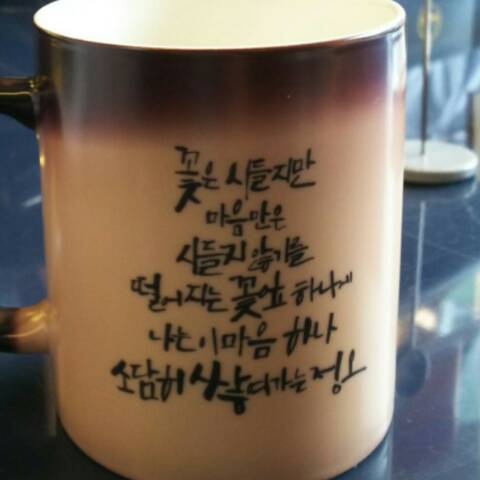 꽃은 시들지만
마음만은
시들지 않기를
떨어지는 꽃잎 하나에
나는 이 마음 하나
소담히 정오